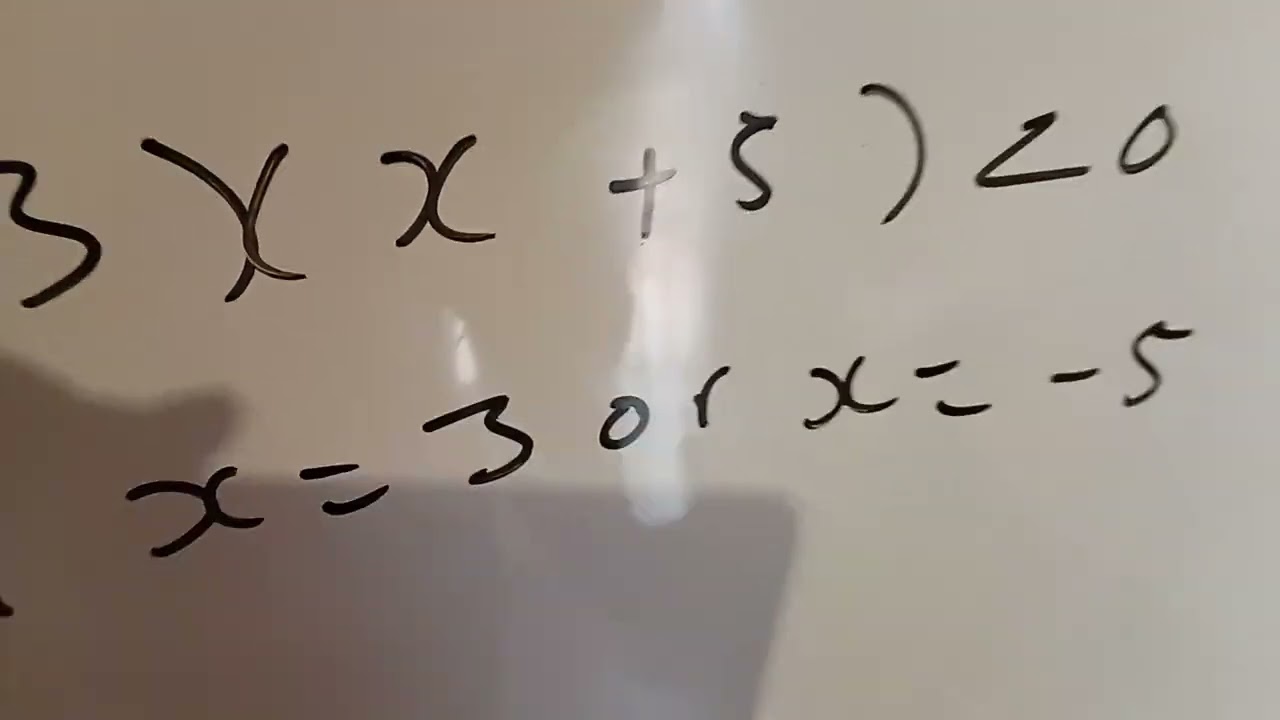 3)(x+5)<0
x=3 or x=-5